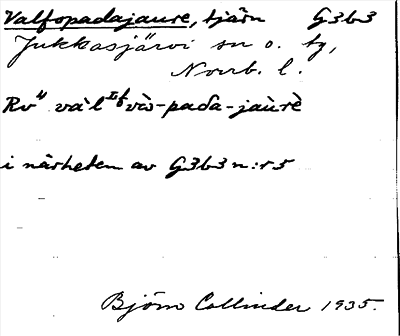 Valfopadajaure, tjärn G3b3
Jukkasjärvi sn o. tg,
Norrb. l.
Rv" va`l vò-pada-jaùrè
i närheten av G3b3 n:r 5
Björn Collinder 1935.